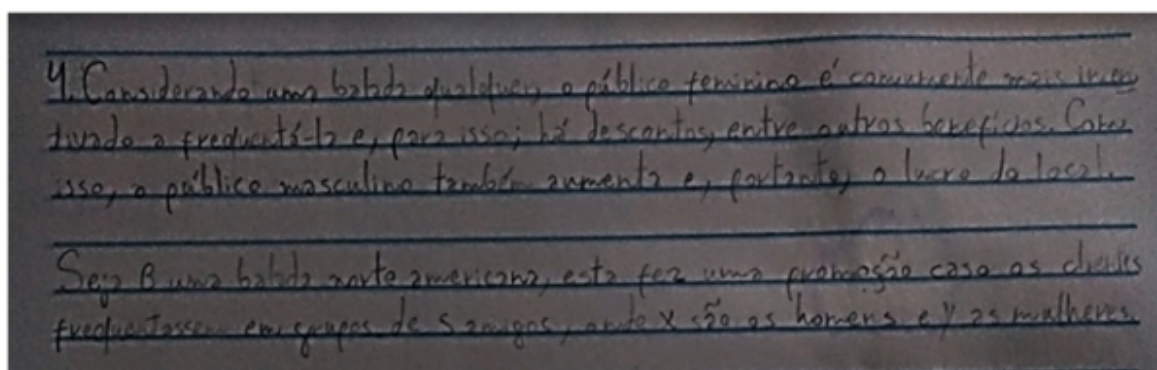 4. Considerando uma balada qualquer, o público feminino é comumente mais incen
tivado a frequentá-la e, para isso, há descontos, entre outros benefícios. Com
isso, o público masculino também aumenta e, portanto, o lucro do local.
Seja B uma balada norte americana, esta fez uma promoção caso os clientes
frequentassem em grupos de 5 amigos, onde x são os homens e y as mulheres.